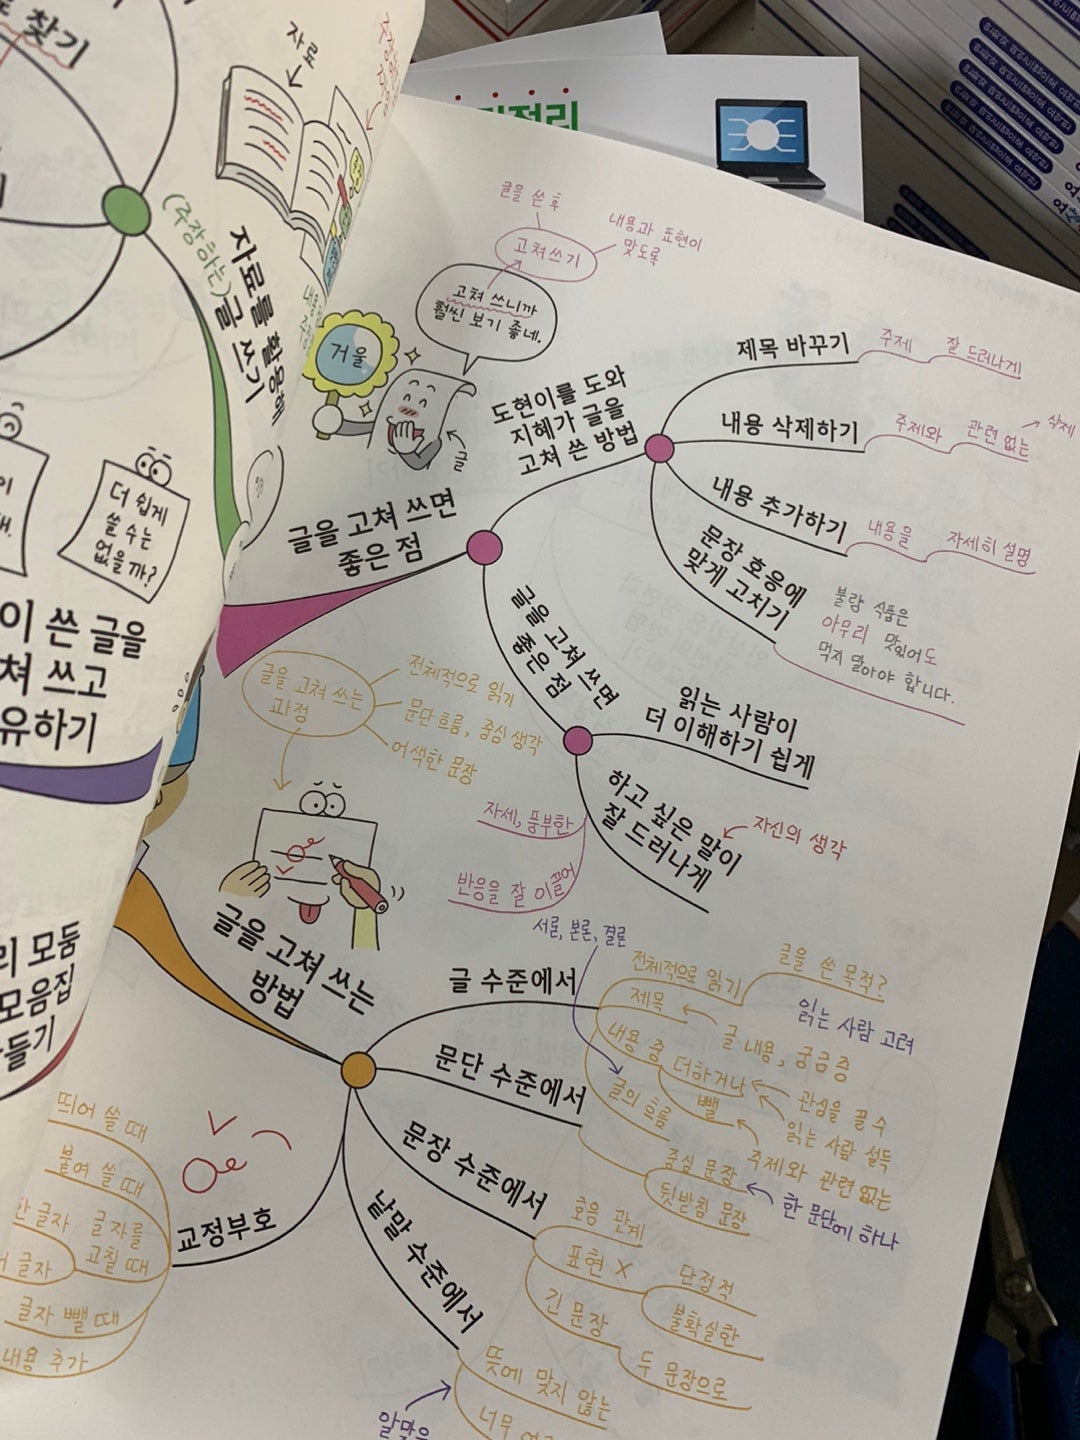 찾기
자료
(주장하는)
자료를 활용해
글 쓰기
더 쉽게
쓸 수는
없을까?
이 쓴 글을
쳐 쓰고
유하기
리 모둠
모음집
들기
글을 쓴 후
고쳐쓰기
내용과 표현이
맞도록
고쳐 쓰니까
훨씬 보기 좋네.
거울
글
글을 고쳐 쓰면
좋은 점
도현이를 도와
지혜가 글을
고쳐 쓴 방법
제목 바꾸기
주제
잘 드러나게
내용 삭제하기
주제와
관련 없는
삭제
내용 추가하기
내용을
자세히 설명
문장 호응에
맞게 고치기
불량 식품은
아무리 맛있어도
먹지 말아야 합니다.
글을 고쳐 쓰면
좋은 점
읽는 사람이
더 이해하기 쉽게
하고 싶은 말이
잘 드러나게
자신의 생각
자세, 풍부한
반응을 잘 이끌어
글을 고쳐 쓰는
과정
전체적으로 읽기
문단 흐름, 중심 생각
어색한 문장
글을 고쳐 쓰는
방법
글 수준에서
서론, 본론, 결론
전체적으로 읽기
글을 쓴 목적?
읽는 사람 고려
제목
글 내용, 궁금증
내용 중
더하거나
관심을 끌 수
뺄
읽는 사람 설득
주제와 관련 없는
글의 흐름
문단 수준에서
중심 문장
뒷받침 문장
한 문단에 하나
문장 수준에서
호응 관계
표현 X
단정적
불확실한
긴 문장
두 문장으로
낱말 수준에서
뜻에 맞지 않는
너무
알맞은
교정부호
띄어 쓸 때
붙여 쓸 때
글자를
고칠 때
한 글자
글자
글자 뺄 때
내용 추가